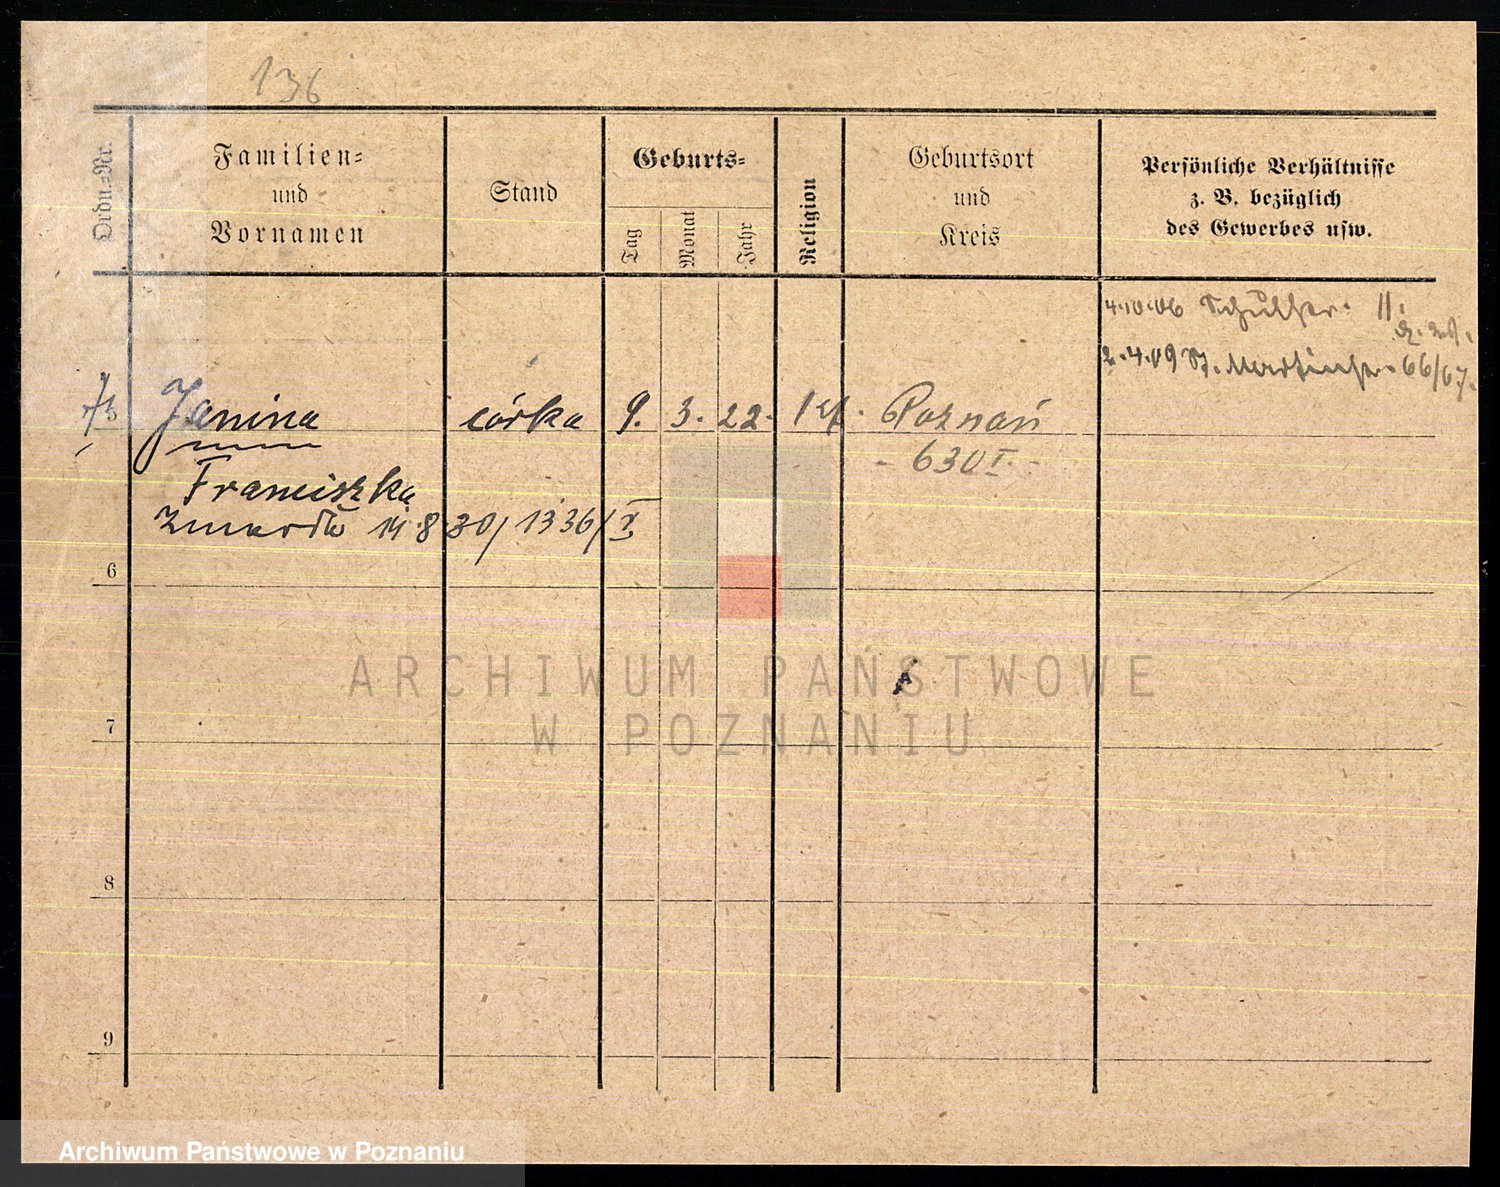 136
Ordn.-Nr.
Familien-
und
Vornamen
Stand
Geburts-
Tag
Monat
Jahr
Religion
Geburtsort
und
Kreis
Persönliche Verhältnisse
z. B. bezüglich
des Gewerbes usw.
4.10.06 Schulstr. 11.
2.4.09 St. Martinstr. 66/67.
5 Janina córka 9. 3. 22. Poznań
- 630 I. -
Franciszka
Zmarła 14.8.30/1336/V
6
ARCHIWUM PAŃSTWOWE
W POZNANIU
7
8
9
Archiwum Państwowe w Poznaniu